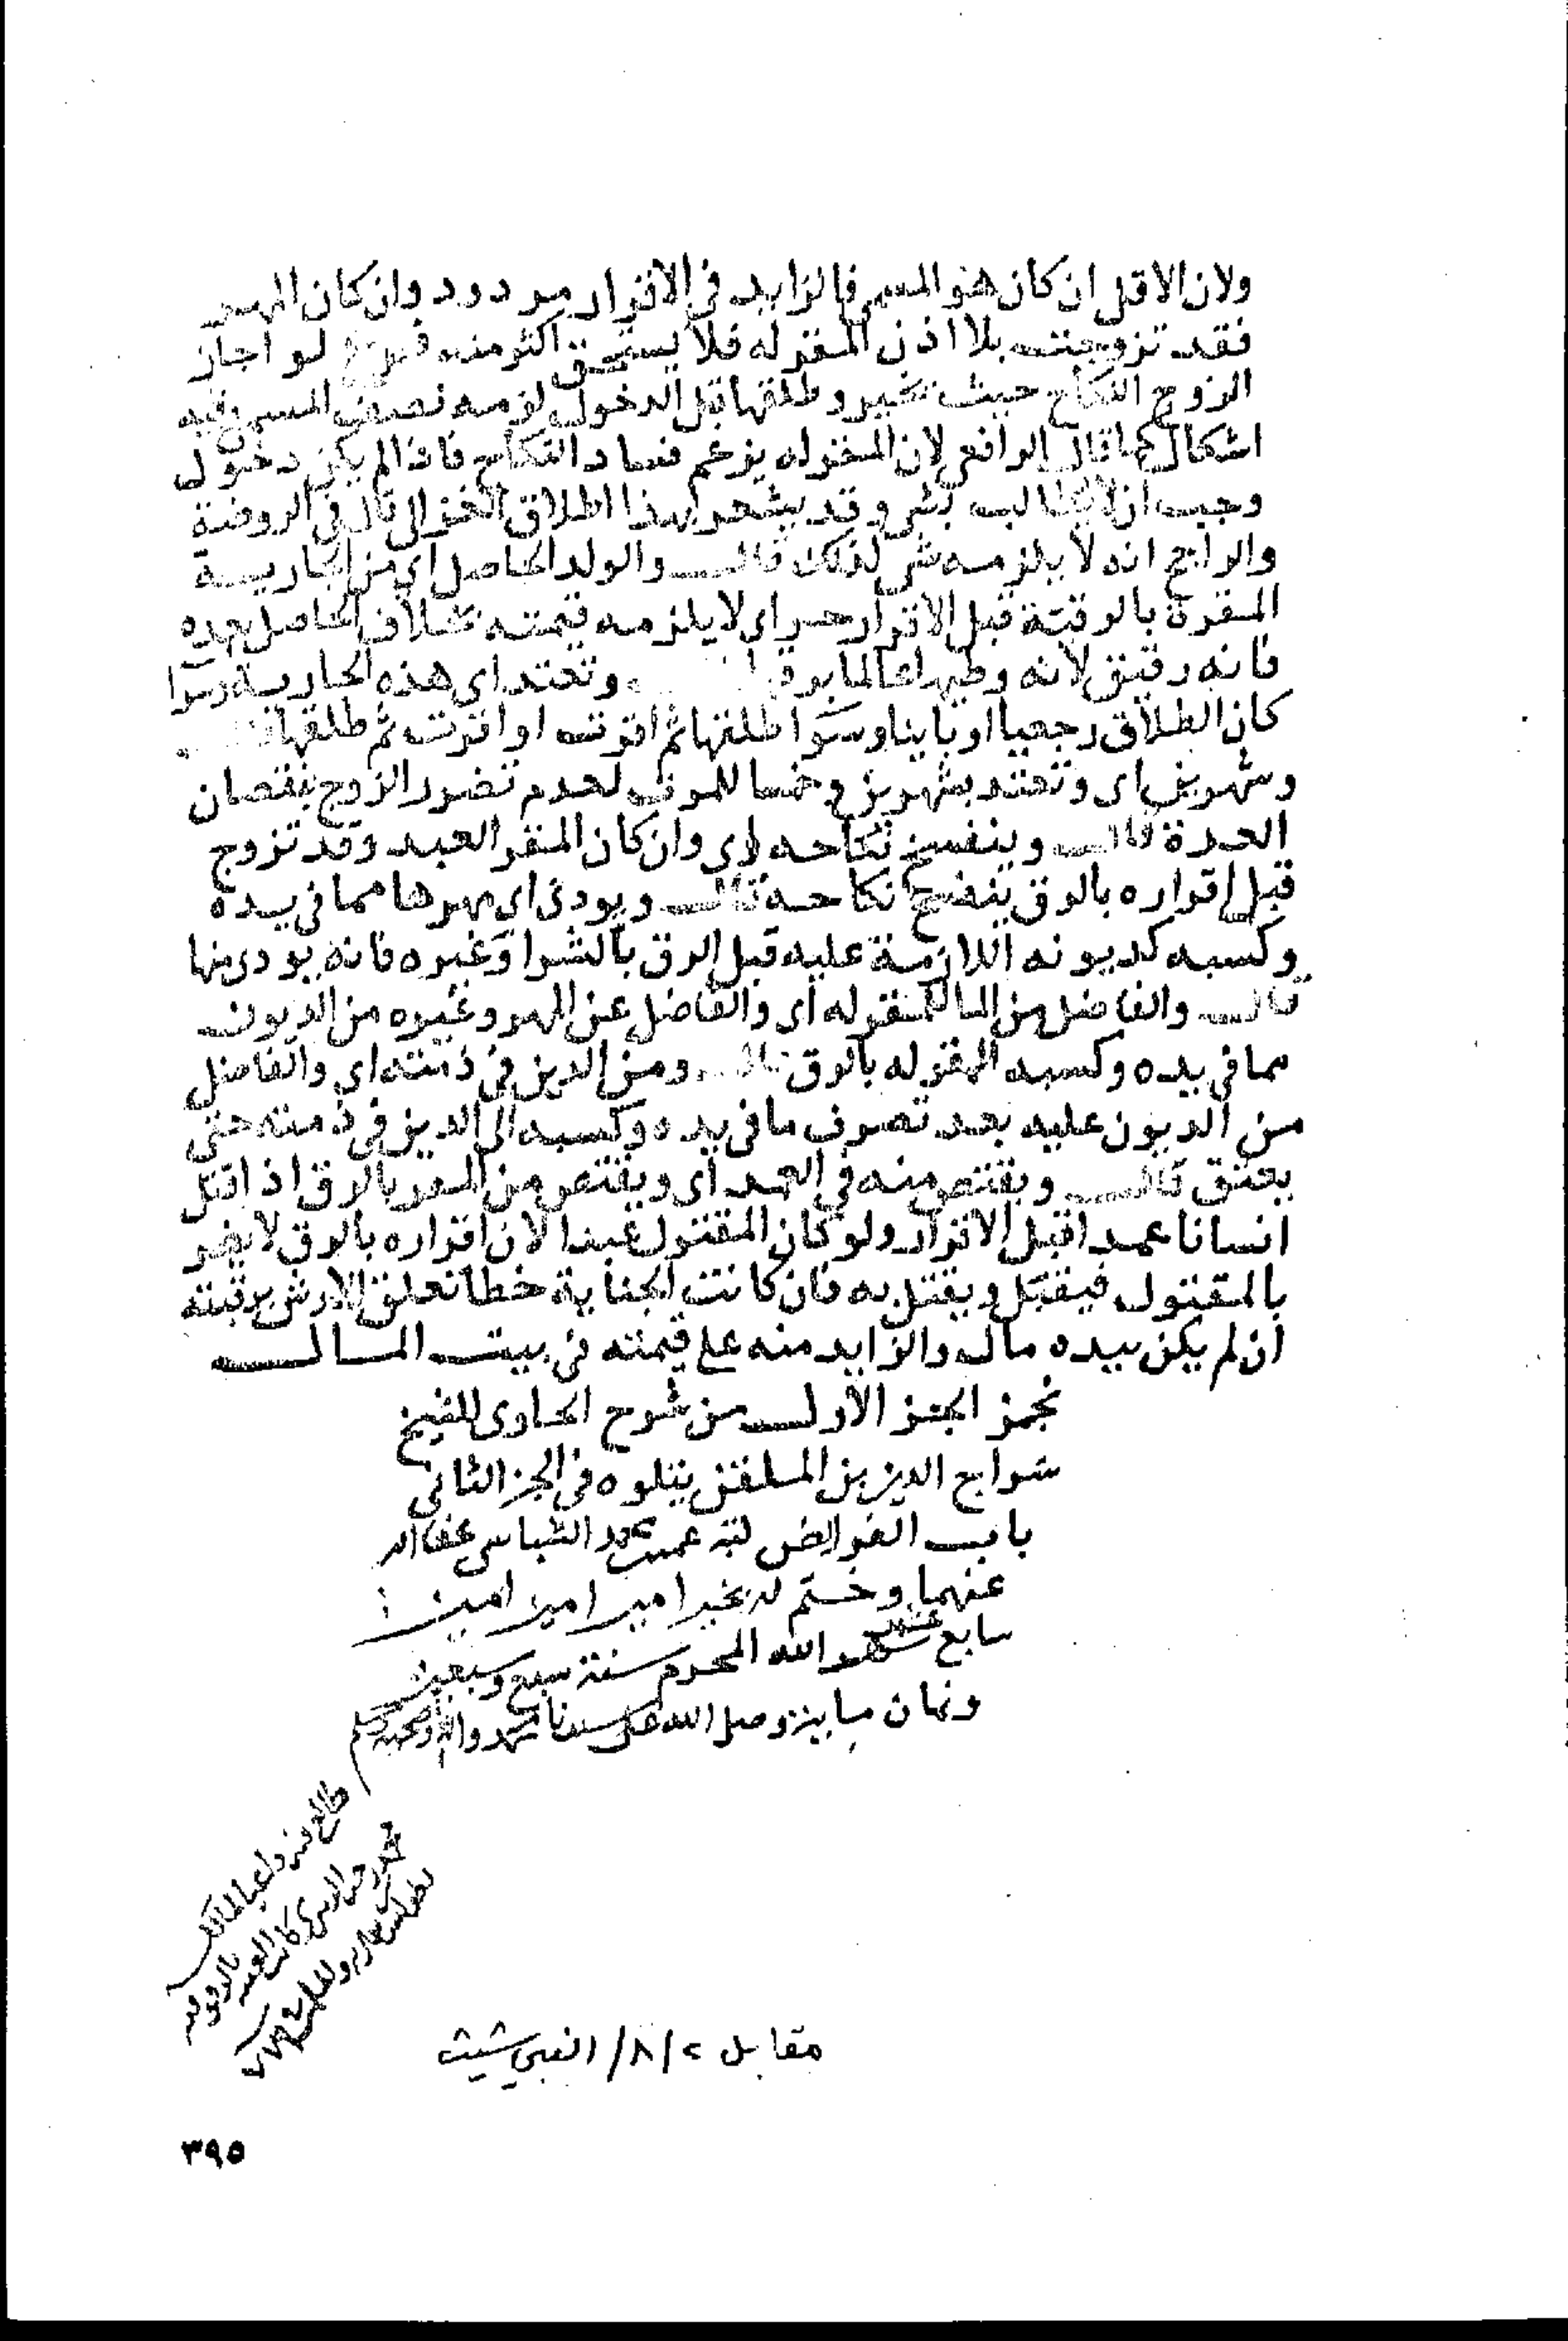 ولان الاقل ان كان هو المسمى فالزايد فى الاقرار مردود وان كان المهر
فقد تزوجت بلا اذن المقر له فلا يستحق اكثر منه فرع لو اجاز
الزوج النكاح حيث تخير وطلقها قبل الدخول لزمه نصف المسمى وفيه
اشكال كما قال الرافعى لان المقر له يزعم فساد النكاح فاذا لم يكن دخول
وجب ان لا يطالب بشى وقد يشعر بهذا اطلاق الغزالى قال فى الروضة
والراجح انه لا يلزمه شى لذلك قال والولد الحاصل اى من الجارية
المقرة بالرق قبل الاقرار حر اى لا يلزمه قيمته بخلاف الحاصل بعده
فانه رقيق لانه وطيها عالما برقها وتعتد اى هذه الجارية سوا
كان الطلاق رجعيا او باينا وسوا طلقها ثم اقرت او اقرت ثم طلقها
وشهرين اى وتعتد بشهرين وخمسا للموت لعدم تضرر الزوج بنقصان
العدة قال وينفسخ نكاحه اى وان كان المقر العبد وقد تزوج
قبل اقراره بالرق ينفسخ نكاحه قال ويودى اى مهرها مما فى يده
وكسبه كديونه اللازمة عليه قبل الرق بالشرا وغيره فانه يودى منها
قال والفاضل من المال للمقر له اى والفاضل عن المهر وغيره من الديون
مما فى يده وكسبه للمقر له بالرق قال ومن الدين فى ذمته اى والفاضل
من الديون عليه بعد تصرف ما فى يده وكسبه الى الدين فى ذمته حتى
يعتق قال ويقتص منه فى العمد اى ويقتص من المقر بالرق اذا قتل
انسانا عمدا قبل الاقرار ولو كان المقتول عبدا لان اقراره بالرق لا يضر
بالمقتول فيقبل ويقتل به فان كانت الجناية خطا تعلق الارش برقبته
ان لم يكن بيده مال والزايد منه على قيمته فى بيت المال
نجز الجز الاول من شرح الحاوى للشيخ
سراج الدين بن الملقن يتلوه فى الجز الثانى
باب الفرايض محمد عفا الله
عنهما وختم له بخير امين امين امين
سابع عشر شهر الله المحرم سنة سبع وسبعين
وثمان ماية وصلى الله على سيدنا محمد واله وصحبه وسلم
طالع فيه
مقابل ٢/٨/ النبي شيث
٣٩٥